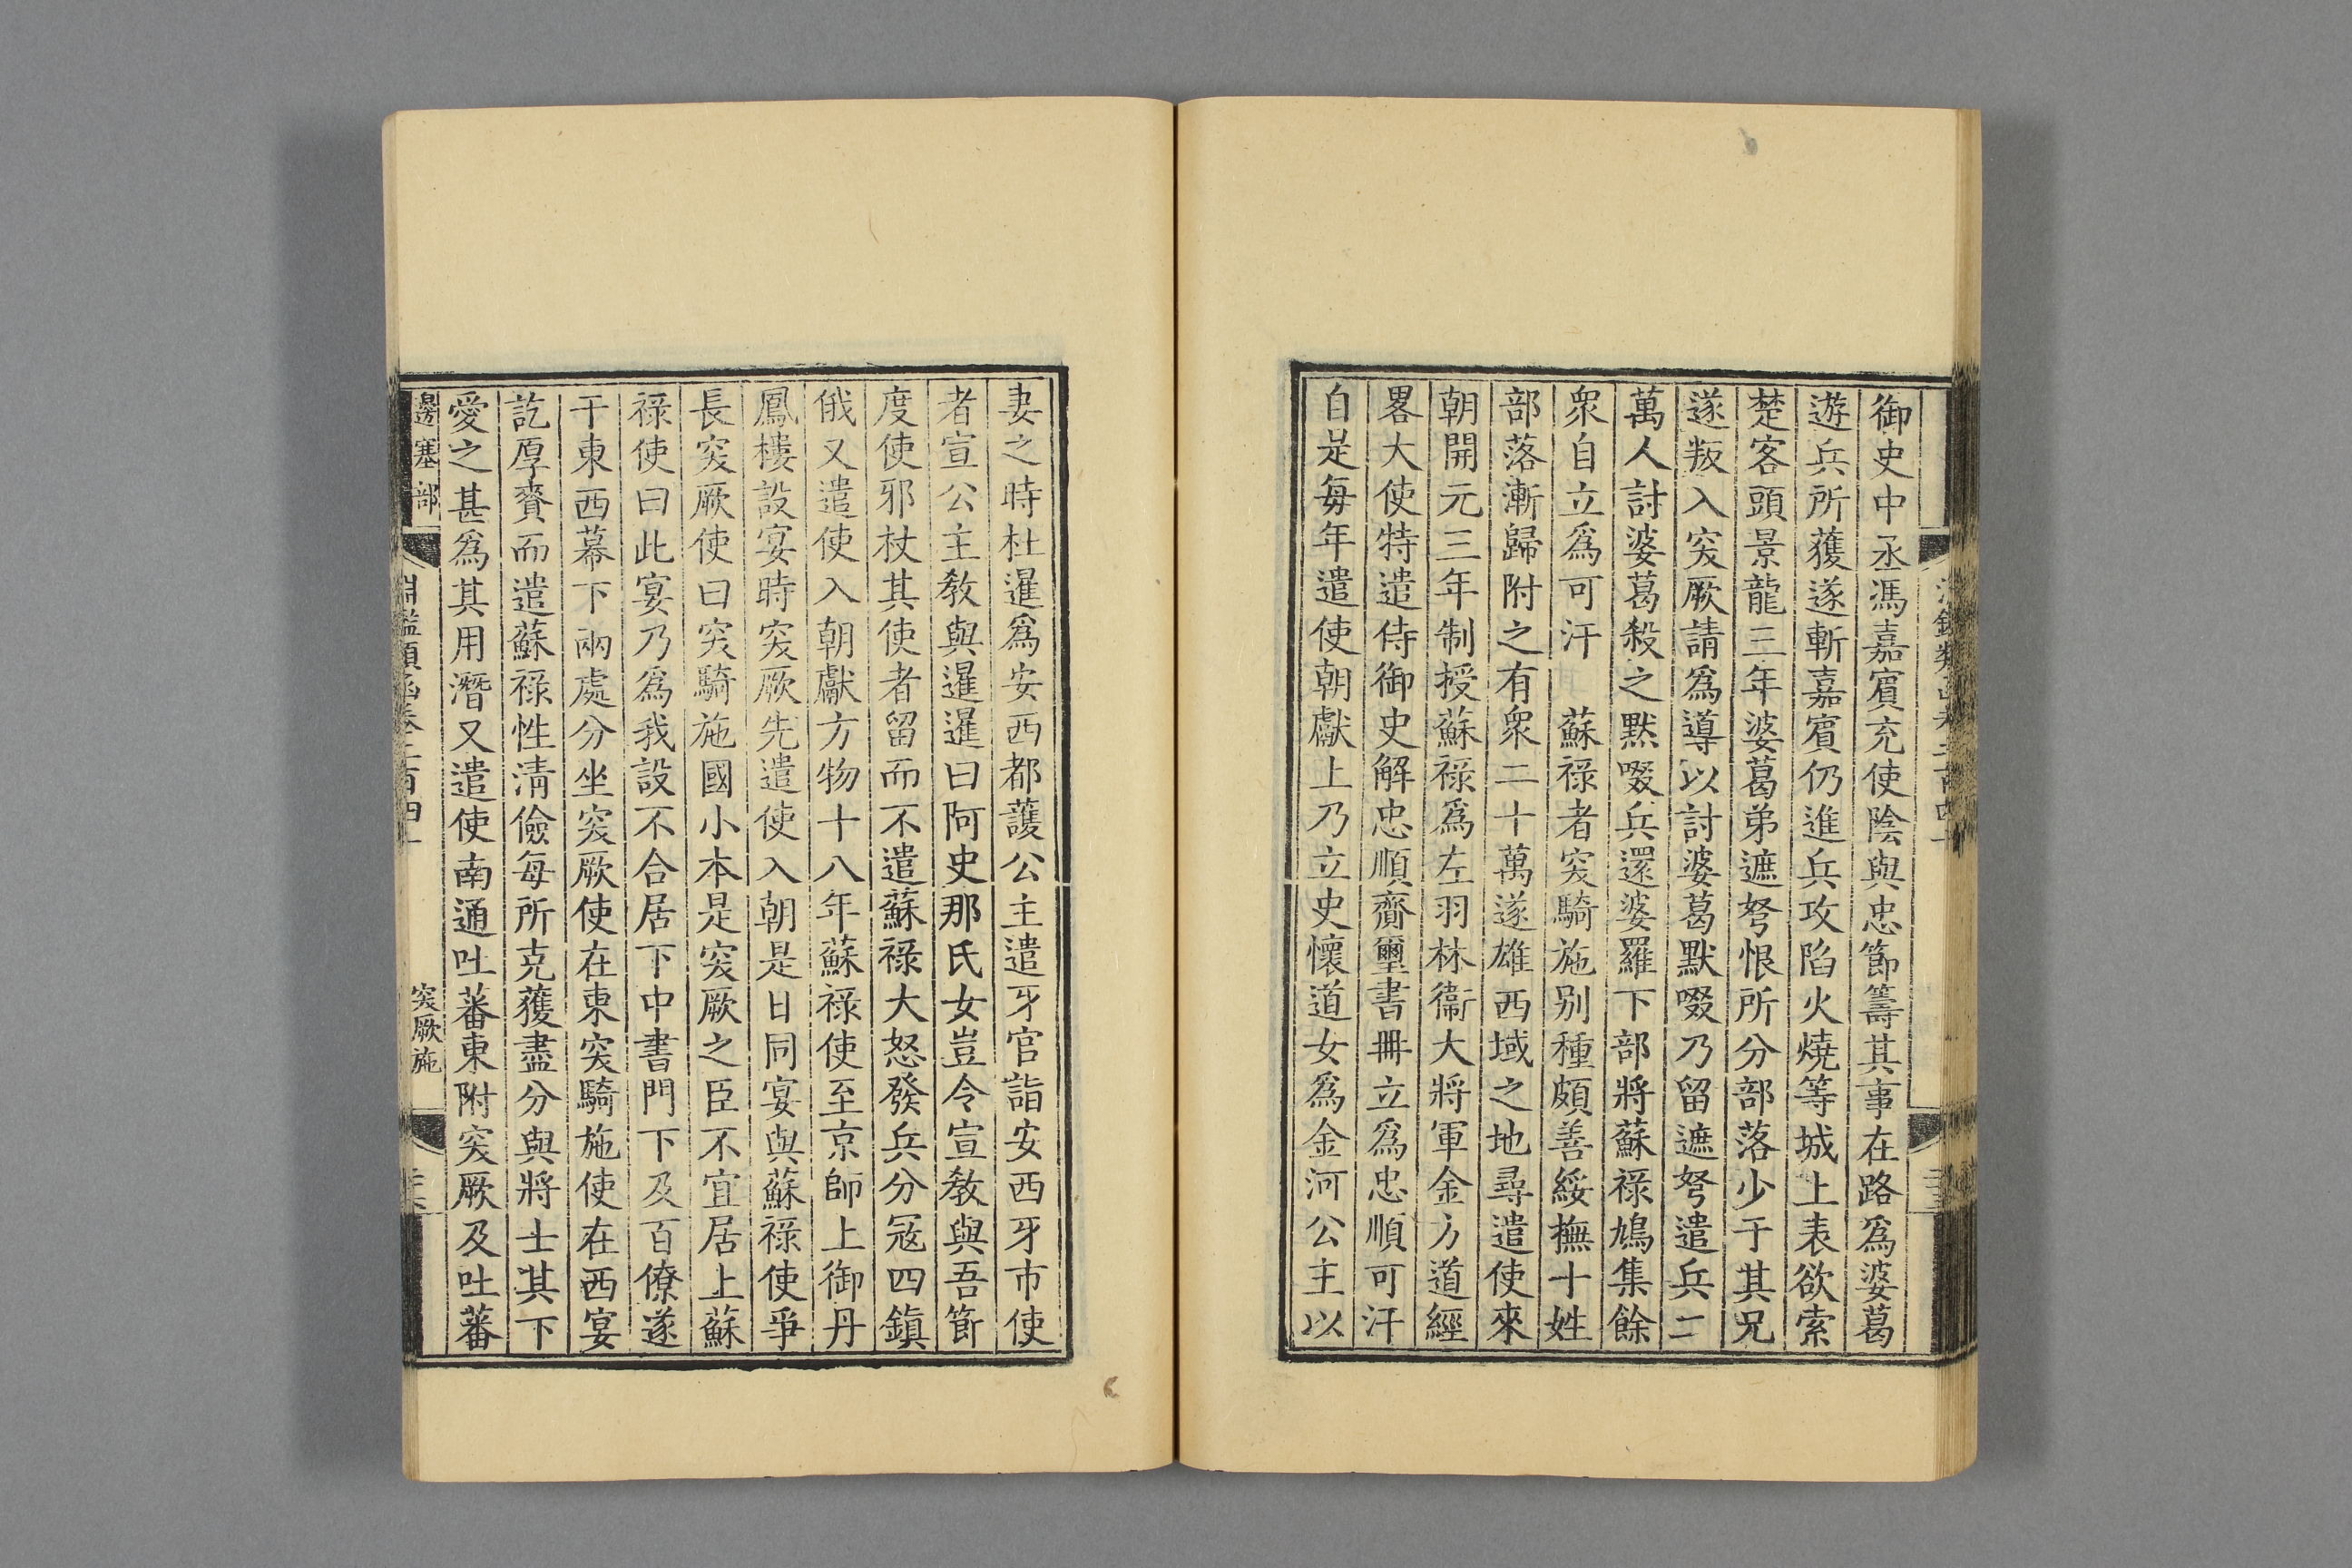 御史中丞馮嘉賓充使陰與忠節籌其事在路爲婆葛
遊兵所獲遂斬嘉賓仍進兵攻陷火燒等城上表欲索
楚客頭景龍三年婆葛弟遮弩恨所分部落少于其兄
遂叛入突厥請爲導以討婆葛默啜乃留遮弩遣兵二
萬人討婆葛殺之默啜兵還婆羅下部將蘇祿鳩集餘
眾自立爲可汗　蘇祿者突騎施别種頗善綏撫十姓
部落漸歸附之有眾二十萬遂雄西域之地尋遣使來
朝開元三年制授蘇祿爲左羽林衞大將軍金方道經
畧大使特遣侍御史解忠順齎璽書冊立爲忠順可汗
自是每年遣使朝獻上乃立史懷道女爲金河公主以
妻之時杜暹爲安西都護公主遣牙官詣安西牙市使
者宣公主敎與暹暹曰阿史那氏女豈令宣敎與吾節
度使邪杖其使者留而不遣蘇祿大怒發兵分冦四鎭
俄又遣使入朝獻方物十八年蘇祿使至京師上御丹
鳳樓設宴時突厥先遣使入朝是日同宴與蘇祿使爭
長突厥使曰突騎施國小本是突厥之臣不宜居上蘇
祿使曰此宴乃爲我設不合居下中書門下及百僚遂
于東西幕下兩處分坐突厥使在東突騎施使在西宴
訖厚賚而遣蘇祿性清儉每所克獲盡分與將士其下
愛之甚爲其用潛又遣使南通吐蕃東附突厥及吐蕃
邊塞部
淵鑑類函卷二百四十
突厥施